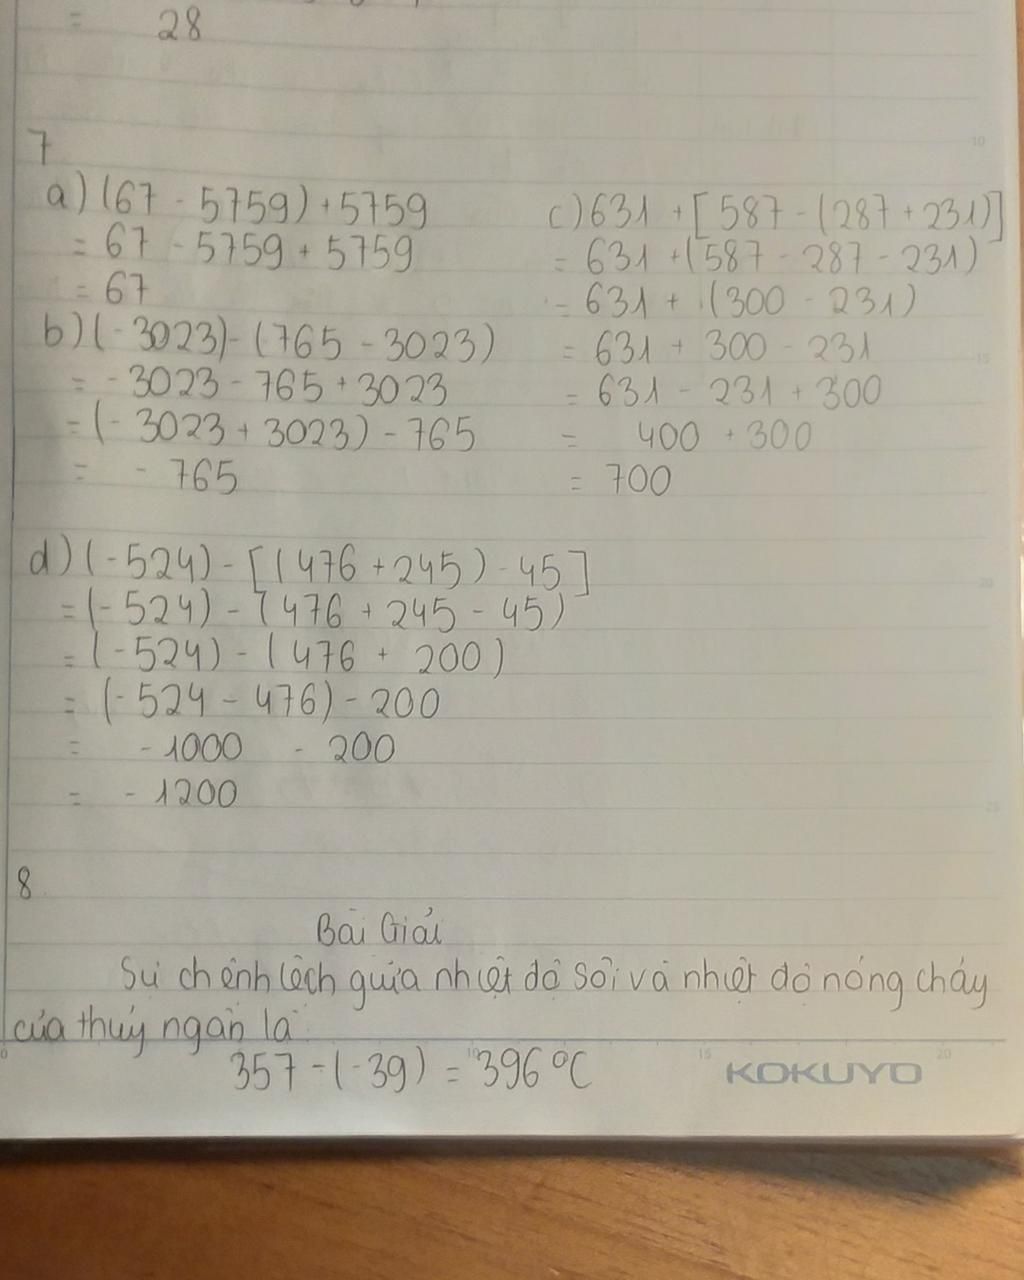 = 28
7
a) (67 - 5759) + 5759
= 67 - 5759 + 5759
= 67
b) (-3023) - (765 - 3023)
= -3023 - 765 + 3023
= (-3023 + 3023) - 765
= - 765
c) 631 + [587 - (287 + 231)]
= 631 + (587 - 287 - 231)
= 631 + (300 - 231)
= 631 + 300 - 231
= 631 - 231 + 300
= 400 + 300
= 700
d) (-524) - [(476 + 245) - 45]
= (-524) - (476 + 245 - 45)
= (-524) - (476 + 200)
= (-524 - 476) - 200
= -1000 - 200
= - 1200
8
Bài Giải
Sự chênh lệch giữa nhiệt độ sôi và nhiệt độ nóng chảy
của thủy ngân là
357 - (-39) = 396 °C
KOKUYO
10
15
20
25
0
10
15
20